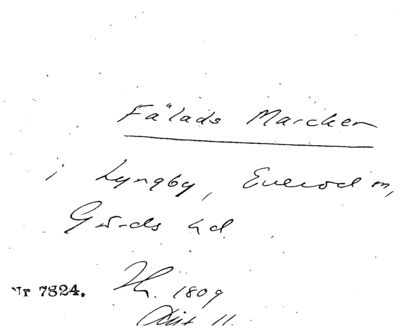 Fälads Marcken
i Lyngby, Everöd m,
Gärds hd
Nr 7824.
1809
Akt 11.